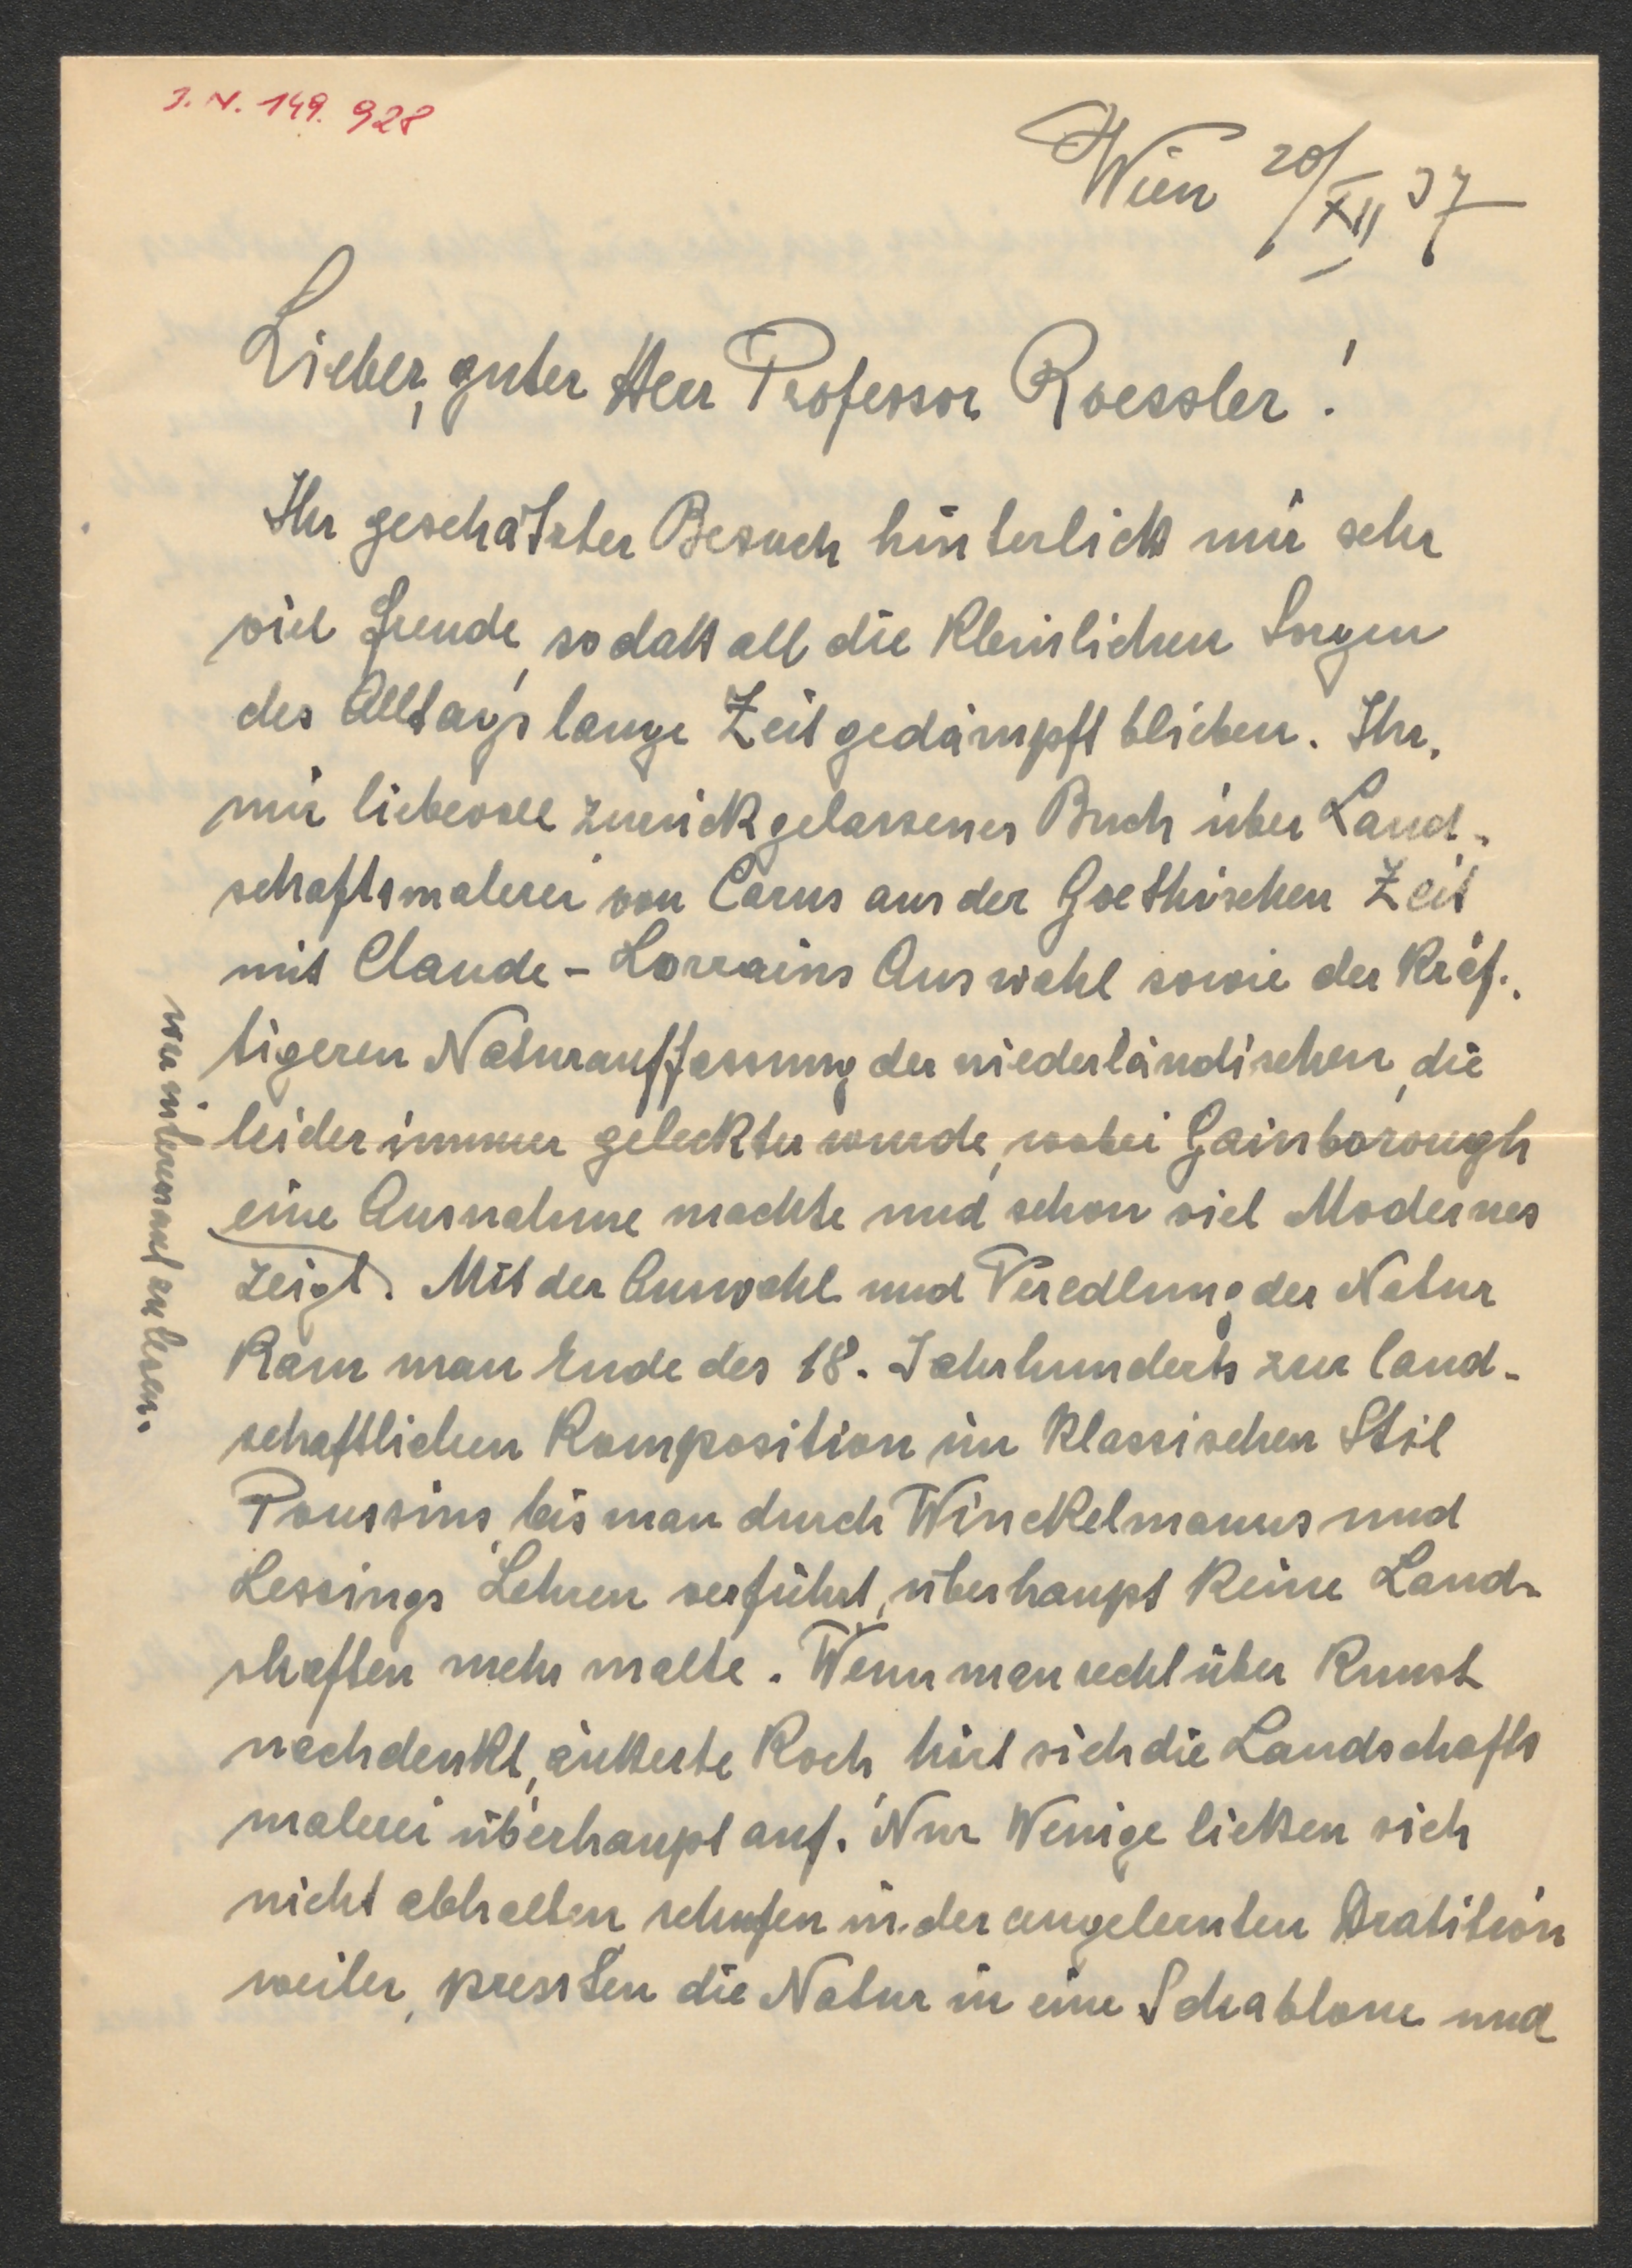 J. N. 149.928
Wien 20/XII 37
Lieber, guter Herr Professor Roessler!
Ihr geschätzter Besuch hinterließ mir sehr
viel Freude, sodaß all die kleinlichen Sorgen
des Alltags lange Zeit gedämpft blieben. Ihr,
mir liebevoll zurückgelassenes Buch über Land-
schaftsmalerei von Carus aus der Goethischen Zeit
mit Claude-Lorrains Auswahl sowie der kräf-
tigeren Naturauffassung der niederländischen, die
leider immer geleckter wurde, wobei Gainsborough
eine Ausnahme machte und schon viel Modernes
zeigt. Mit der Auswahl und Veredlung der Natur
kam man Ende des 18. Jahrhunderts zur land-
schaftlichen Komposition im klassischen Stil
Poussins, bis man durch Winckelmanns und
Lessings Lehren verführt, überhaupt keine Land-
shaften mehr malte. Wenn man recht über Kunst
nachdenkt, äußerte Koch hört sich die Landschafts
malerei überhaupt auf. Nur Wenige ließen sich
nicht abhalten schufen in der angelernten Dratition
weiter, pressten die Natur in eine Schablone und
war interessant zu lesen.